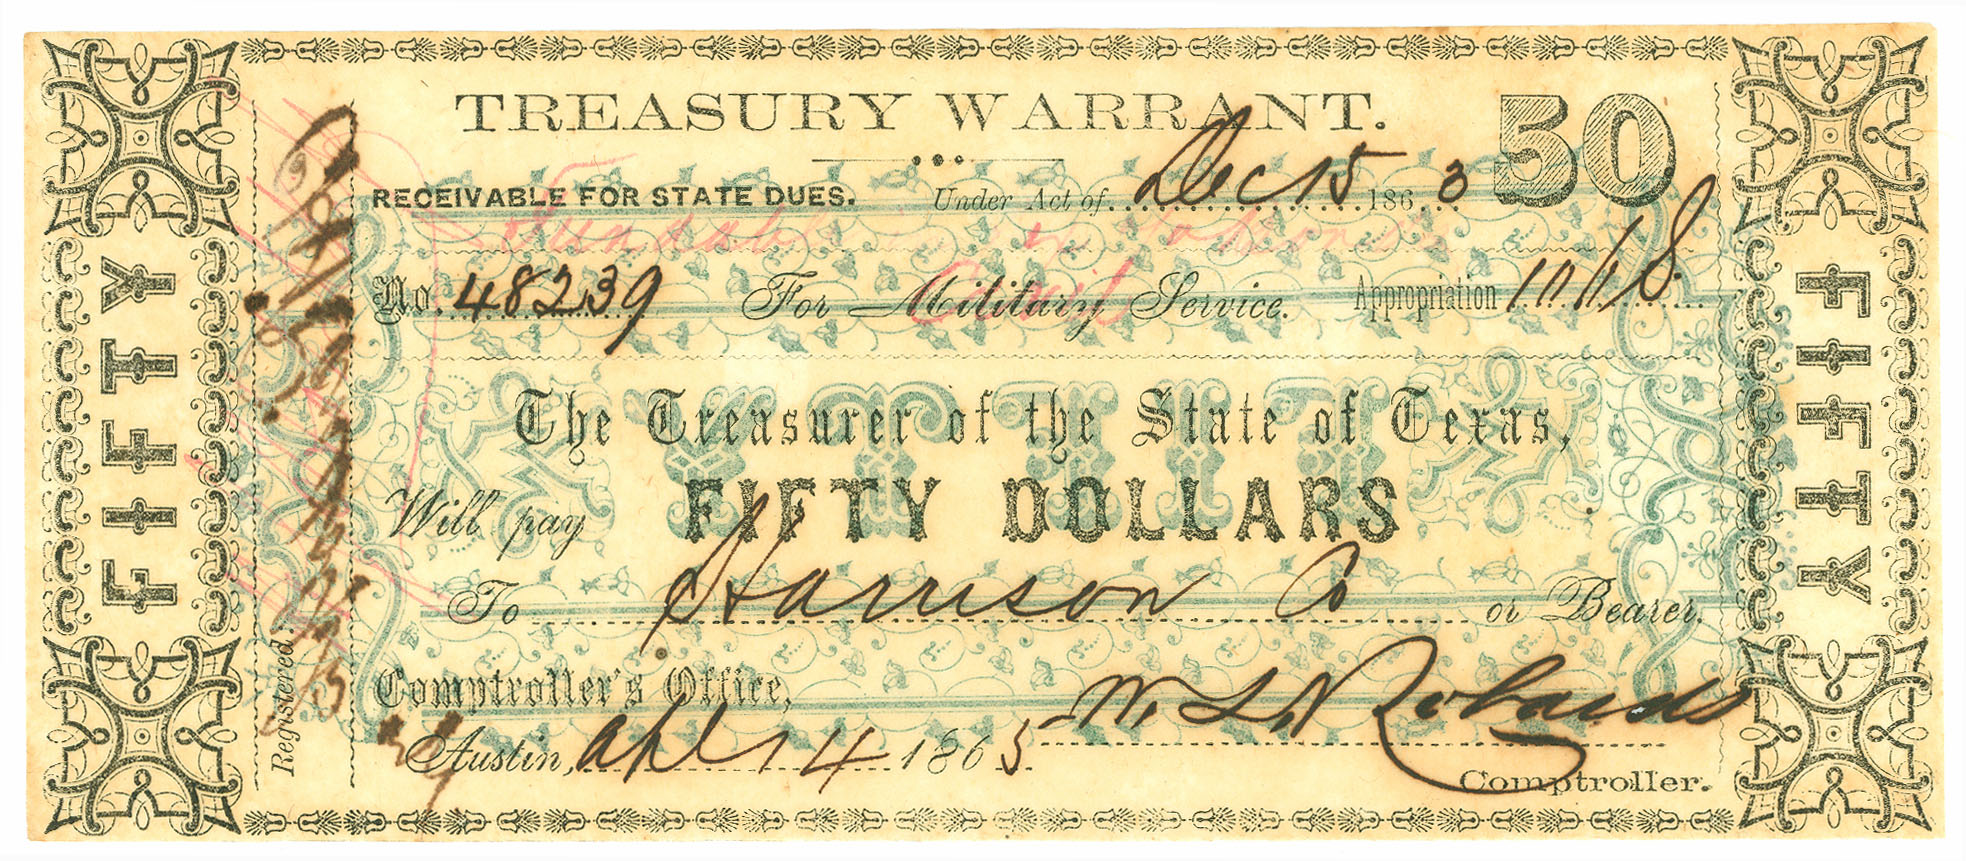 TREASURY WARRANT.
50
RECEIVABLE FOR STATE DUES. Under Act of Dec 15 1863
No. 48239 For Military Service. Appropriation 10118
Civil
The Treasurer of the State of Texas,
Will pay FIFTY DOLLARS
To Harrison Co or Bearer.
Comptroller's Office,
Austin, Apl 14 1865 W. L. Robards
Comptroller.
Registered,
FIFTY
FIFTY
FIFTY